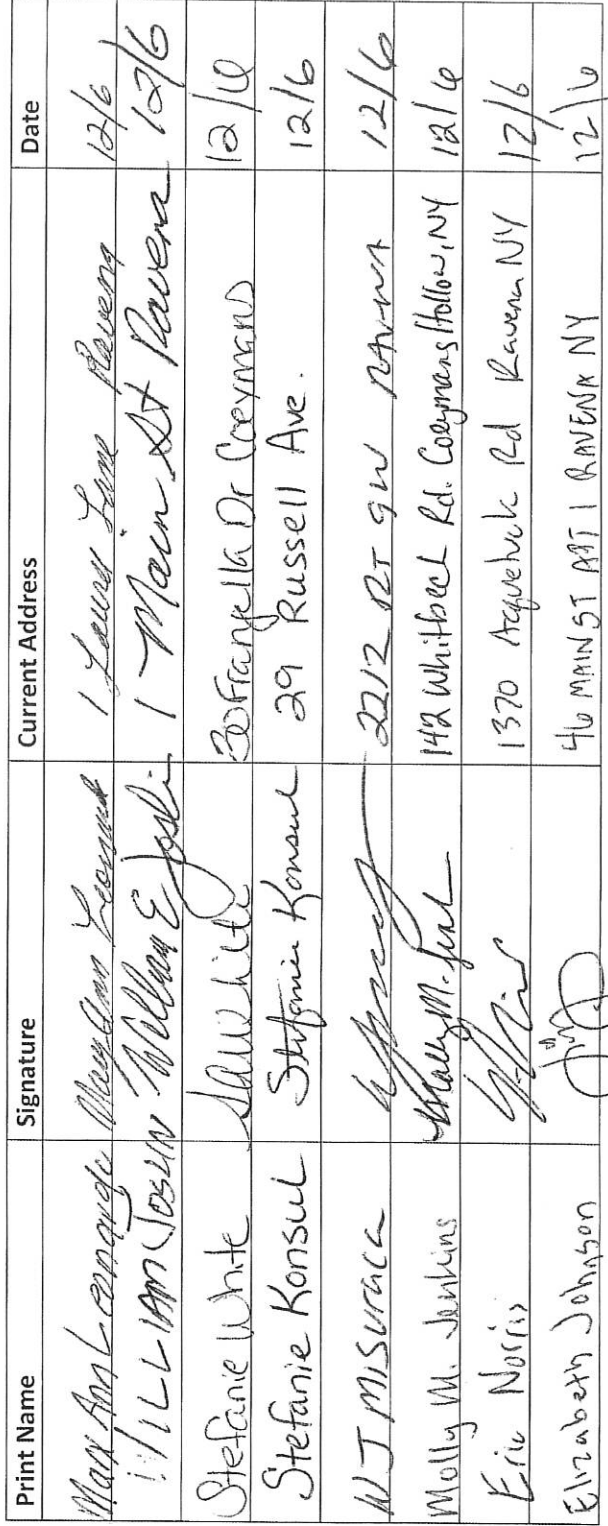 Print Name Signature Current Address Date
Mary Ann Leonardo Mary Ann 1 Lane Ravena 12/6
WILLIAM JOSLIN William E Joslin 1 Main St Ravena 12/6
Stefanie White SaWhite 30 Frangella Dr Coeymans 12/6
Stefanie Konsul Stefanie Konsul 29 Russell Ave. 12/6
WJ MISURACA 2212 RT 9W 12/6
Molly M. Jenkins Molly M. 142 Whitbeck Rd. Coeymans Hollow, NY 12/6
Eric Norris 1370 Rd Ravena NY 12/6
Elizabeth Johnson 46 MAIN ST APT 1 RAVENA NY 12/6